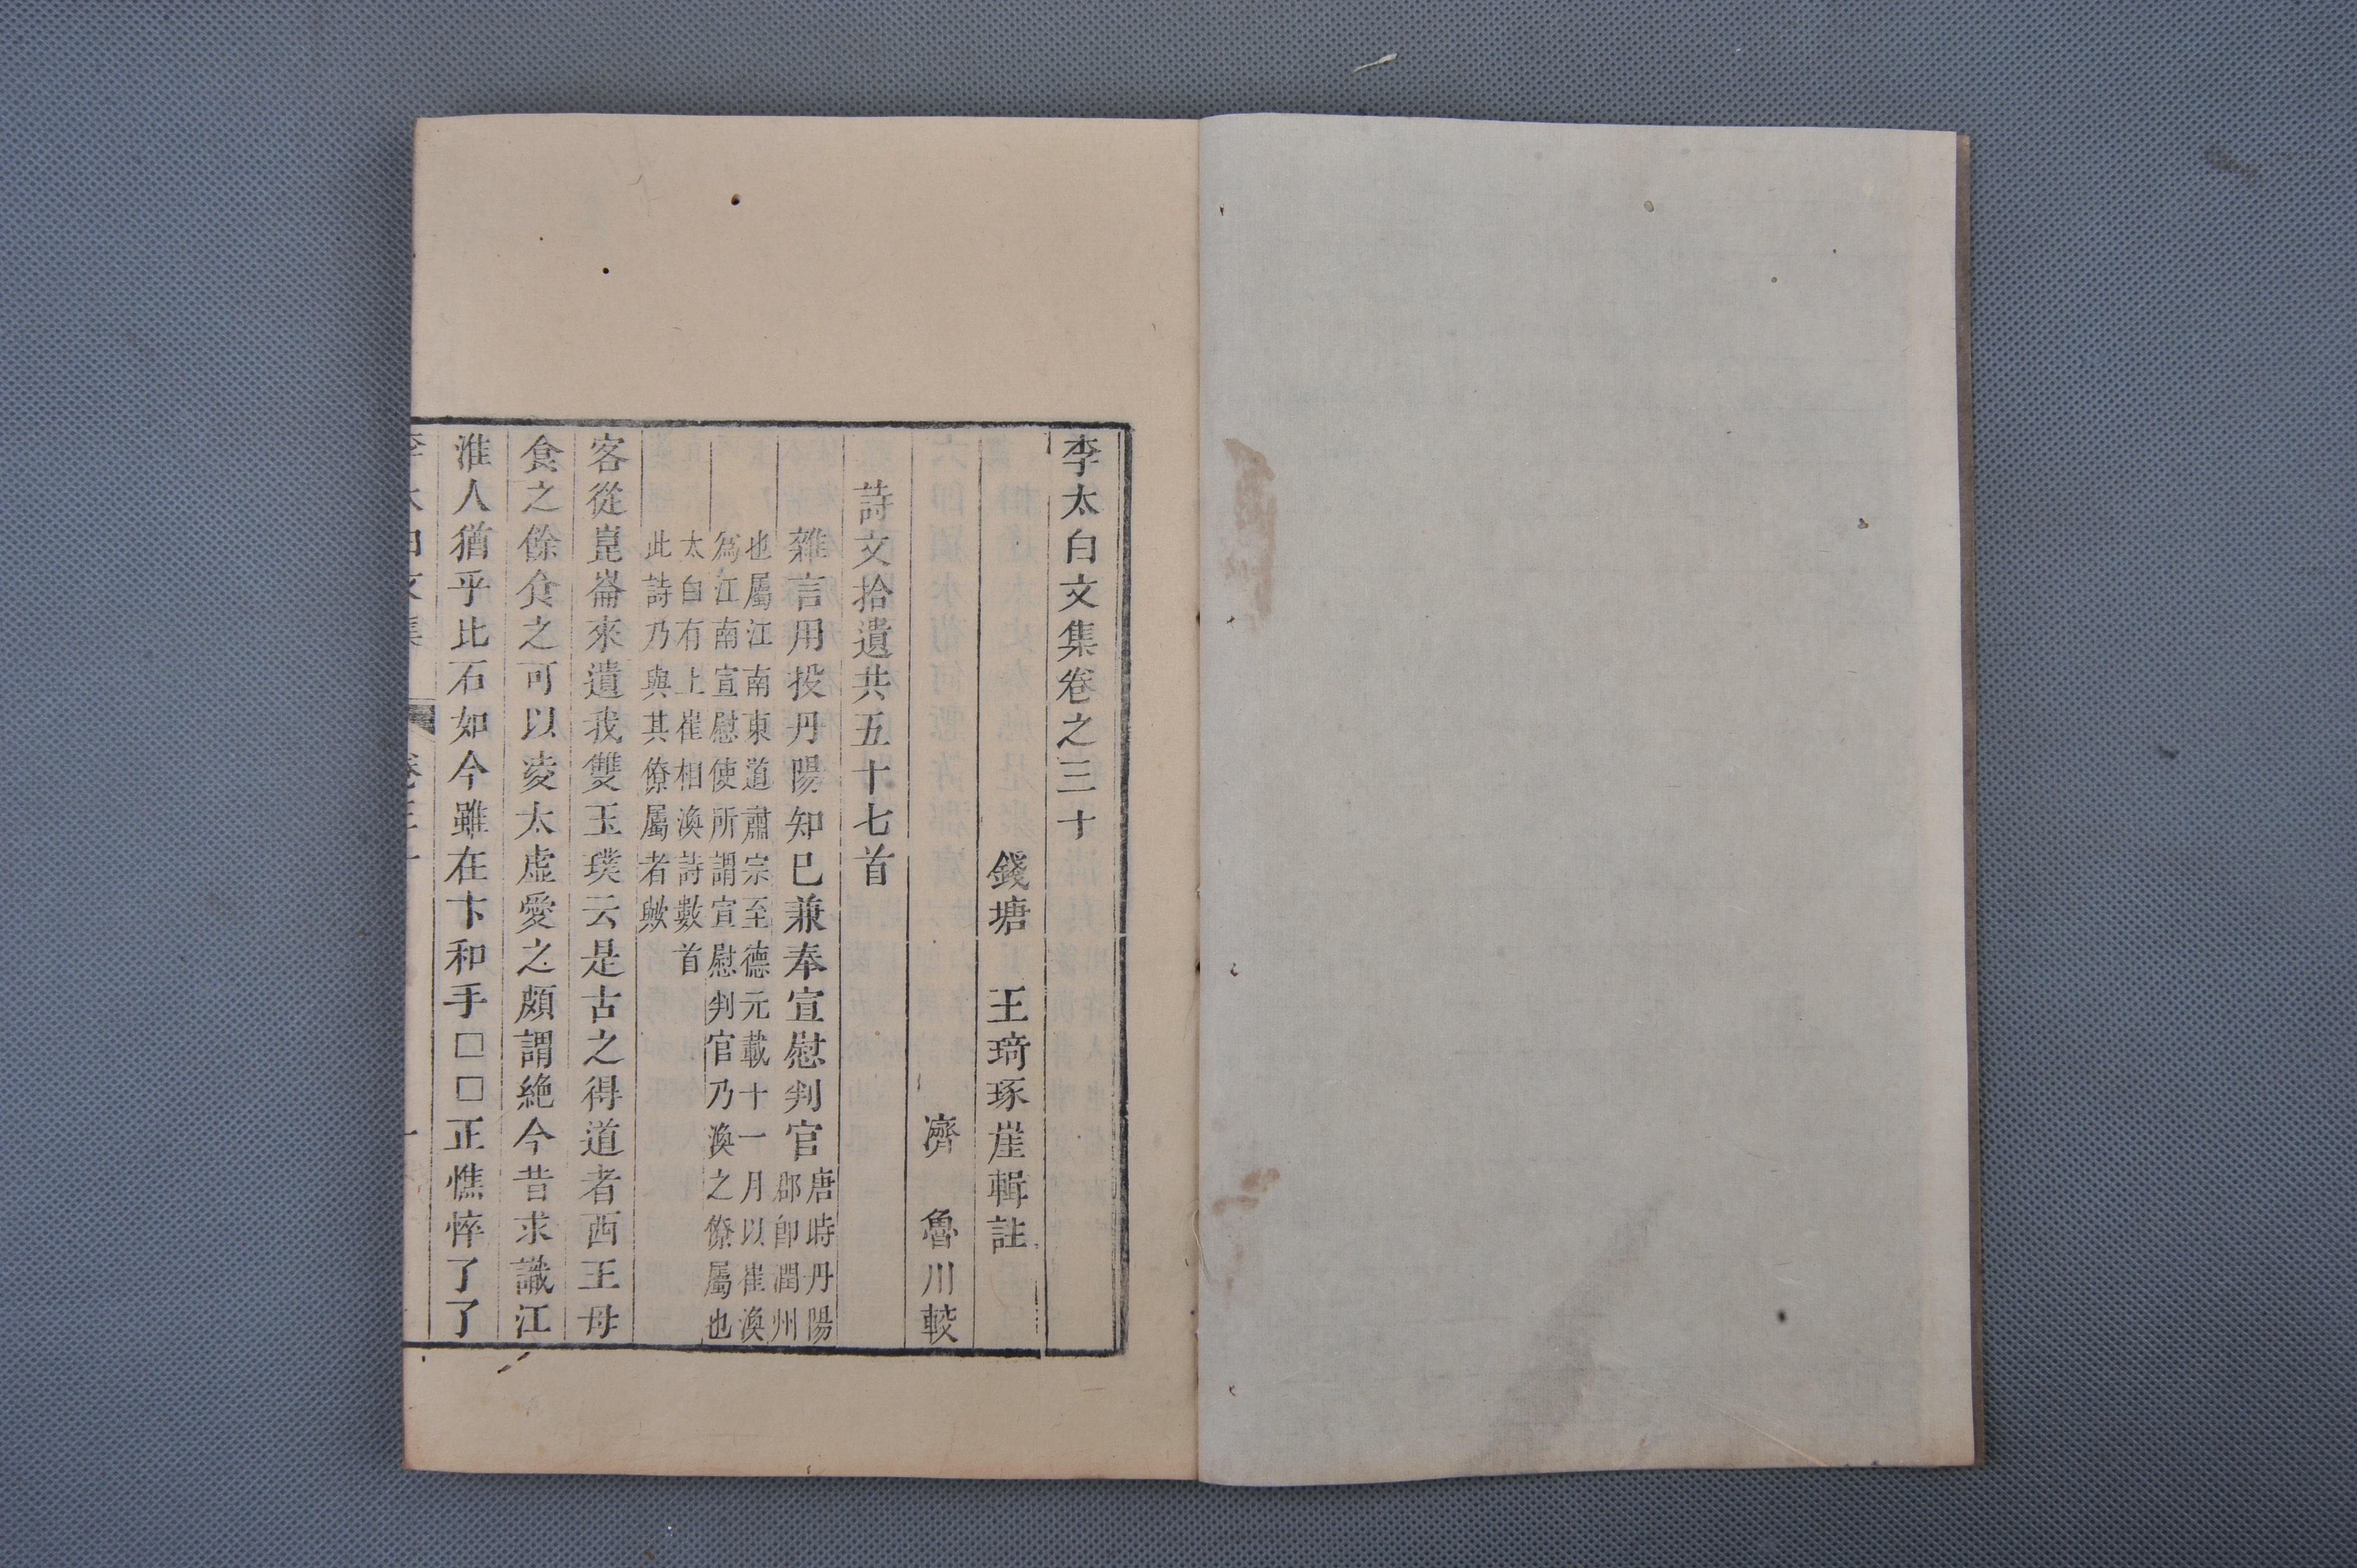 李太白文集卷之三十
錢塘 王琦琢崖輯註
濟 魯川較
詩文拾遺共五十七首
雜言用投丹陽知巳兼奉宣慰判官
唐時丹陽
郡卽潤州
也屬江南東道肅宗至德元載十一月以崔渙
爲江南宣慰使所謂宣慰判官乃渙之僚屬也
太白有上崔相渙詩數首
此詩乃與其僚屬者歟
客從崑崙來遺我雙玉璞云是古之得道者西王母
食之餘食之可以凌太虛愛之頗謂絶今昔求識江
淮人猶乎比石如今雖在卞和手□□正憔悴了了
李太白文集 卷三十 一